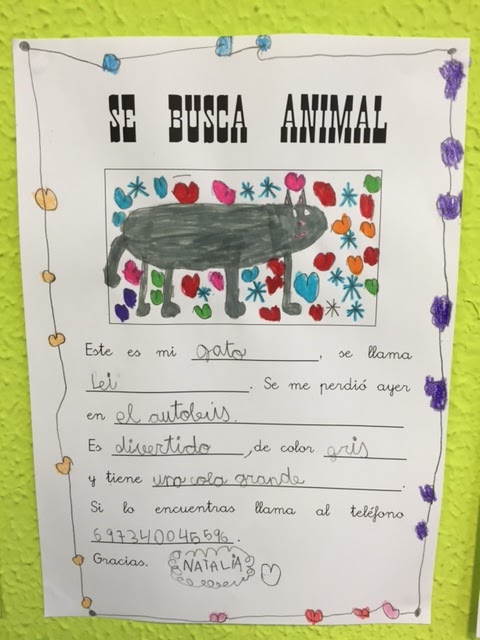 SE BUSCA ANIMAL
Este es mi gato, se llama
Lei. Se me perdió ayer
en el autobús.
Es divertido, de color gris
y tiene una cola grande.
Si lo encuentras llama al teléfono
697340045596.
Gracias. NATALIA